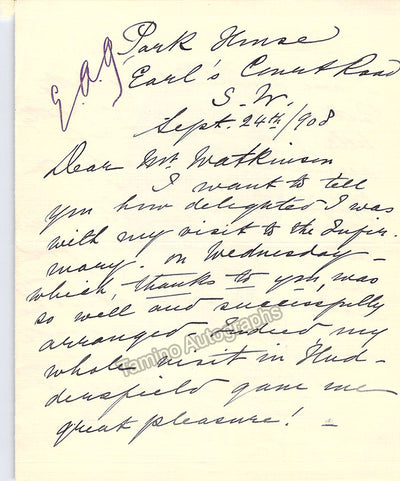 E.A.G
Park House
Earl's Court Road
S.W.
Sept. 24th/908
Dear Mr Watkinson
I want to tell
you how delighted I was
with my visit to the Infir-
mary - on Wednesday -
which, thanks to you, was
so well and successfully
arranged. Indeed, my
whole visit in Hud-
dersfield gave me
great pleasure! -
Tamino Autographs